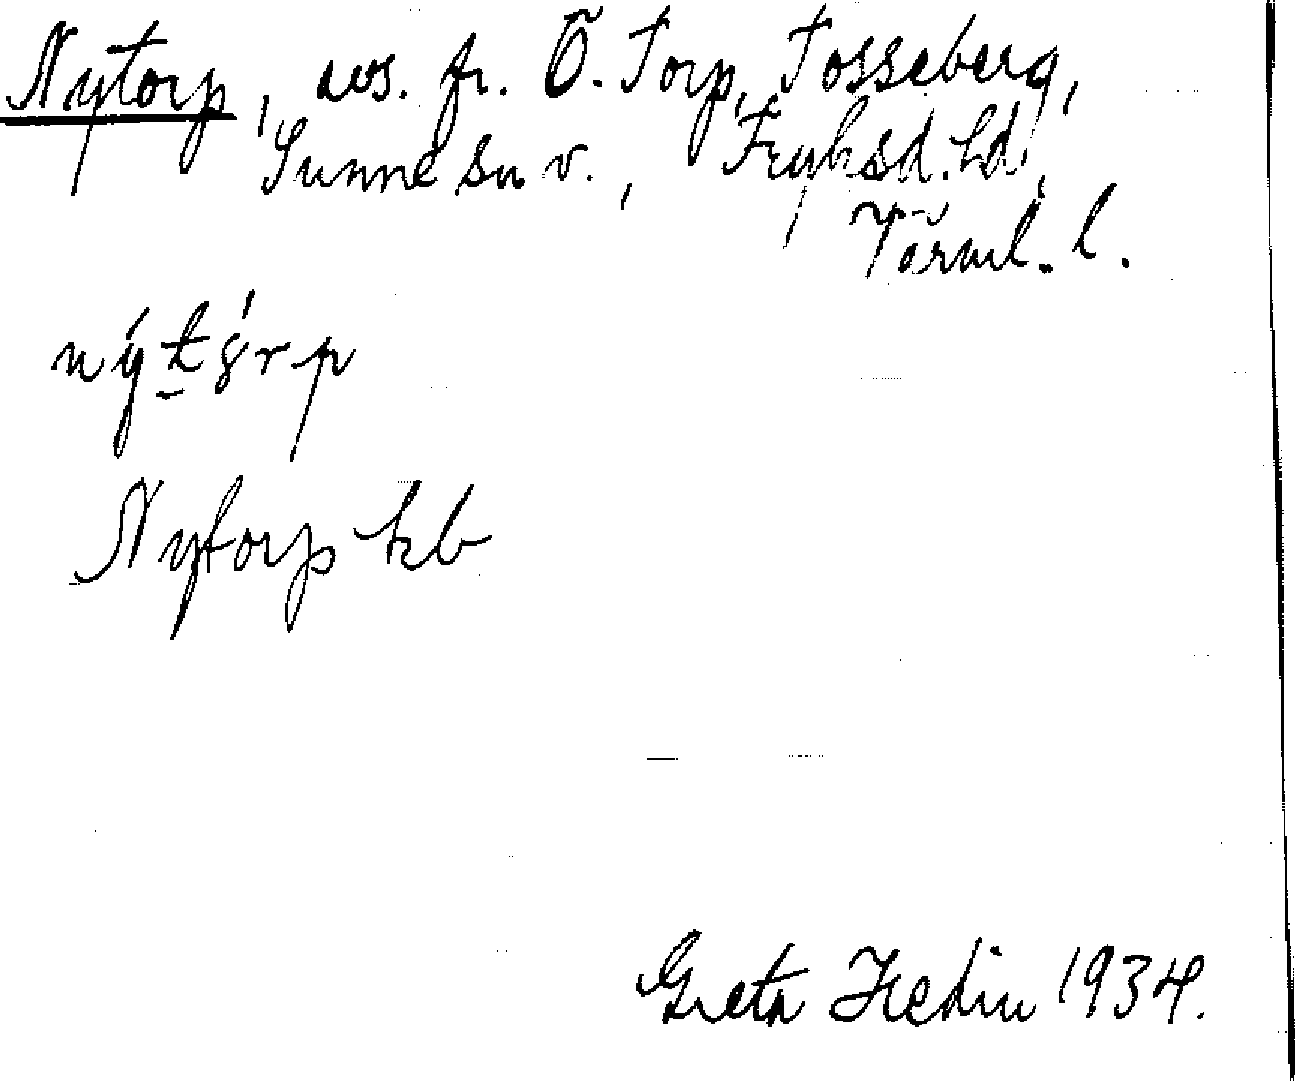 Nytorp, avs. fr. Ö. Torp, Tosseberg,
Sunne sn v., Fryksd. hd,
Värml. l.
Nytorp kb
Greta Hedin 1934.